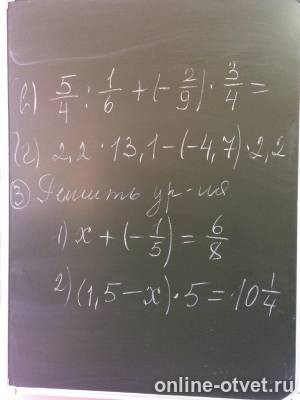 в) 5/4 : 1/6 + (-2/9) · 3/4 =
г) 2,2 · 13,1 - (-4,7) · 2,2
③ Решить ур-ия
1) x + (-1/5) = 6/8
2) (1,5 - x) · 5 = 10 1/4
online-otvet.ru